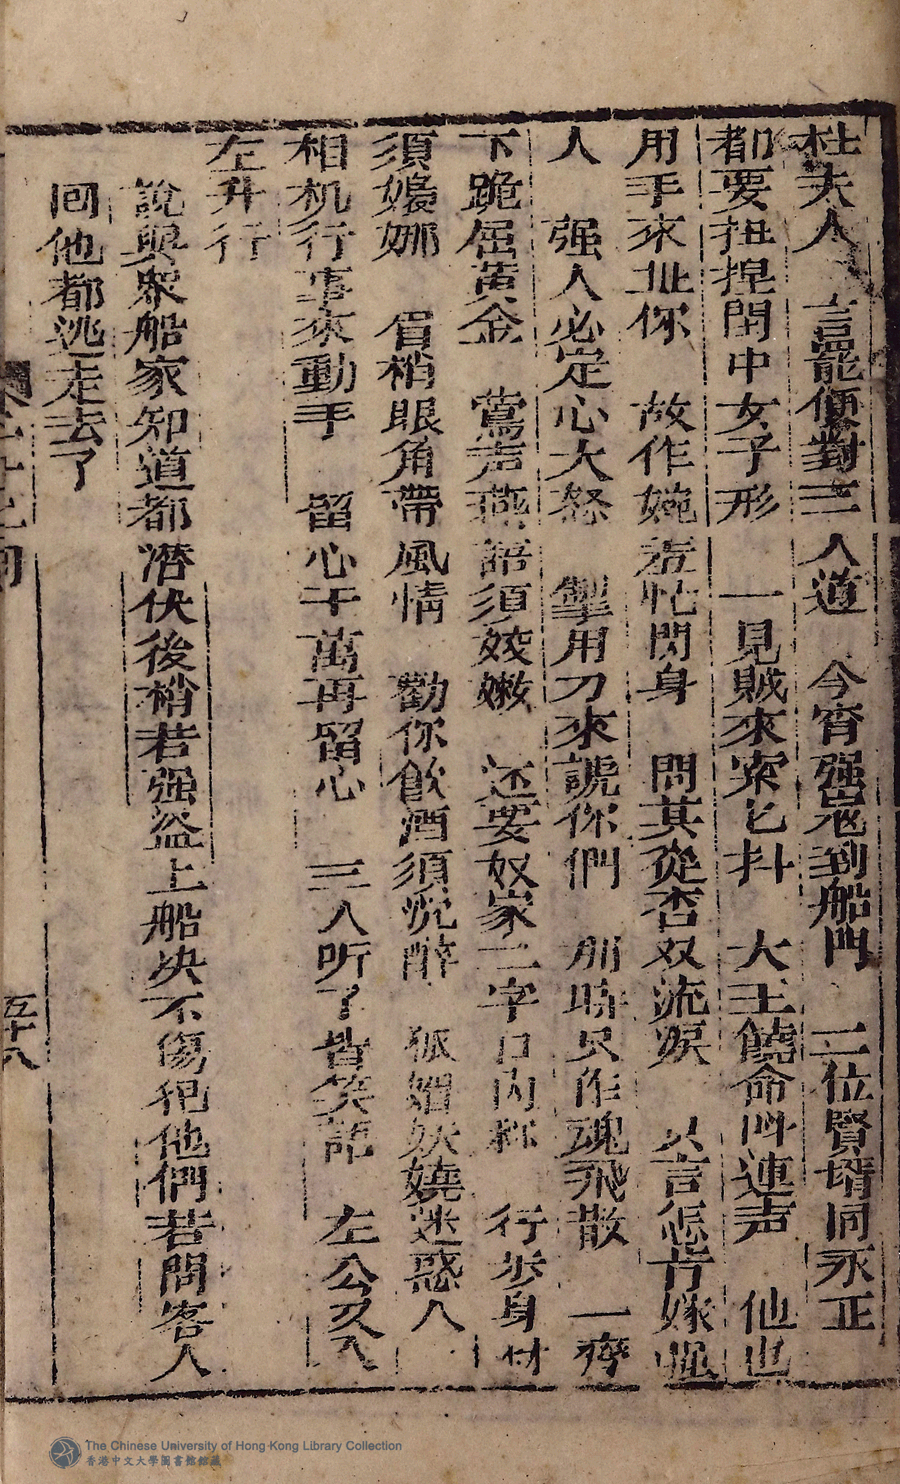 杜夫人 言罷便對三人道 今宵强寇到船門 二位賢壻同永正
都要扭捏閨中女子形 一見賊來索乜抖 大王饒命呌連声 他也
用手來扯你 故作婉羞忙閃身 問其從否双流淚 只言怎肯嫁强
人 强人必定心大怒 掣用刀來諕你們 那時只作魂飛散 一齊
下跪屈黄金 鶯声燕語須姣嫩 还要奴家二字口内称 行步身材
須嬝娜 眉梢眼角帶風情 勸你飲酒須恍醉 狐媚妖嬈迷惑人
相机行事來動手 留心千萬再留心 三人听了皆笑諾 左公又入
左舟行
說與衆船家知道都潜伏後梢若强盗上船决不傷犯他們若問客人
回他都逃走去了
五十八
The Chinese University of Hong Kong Library Collection
香港中文大學圖書館館藏